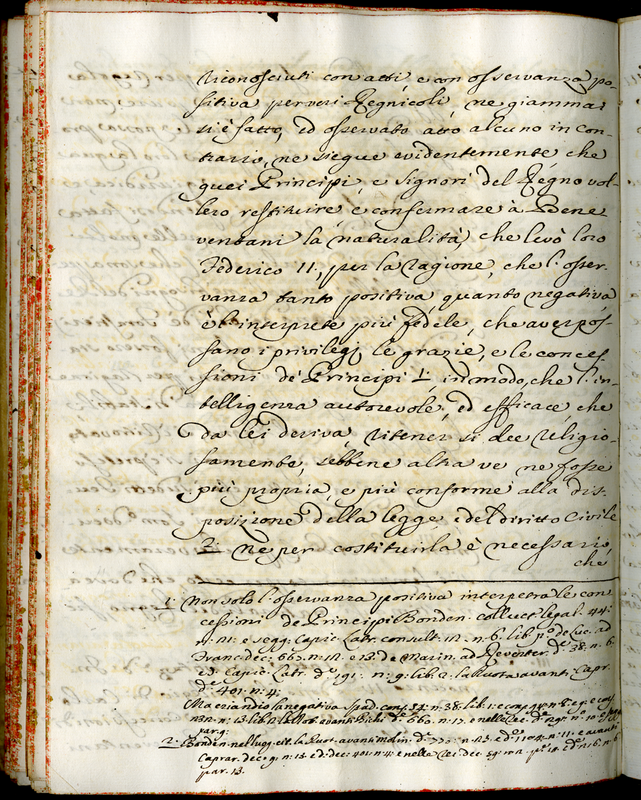 riconosciuti con atti, e con osservanza po-
sitiva per veri Regnicoli, ne giammai
si è fatto, ed osservato atto alcuno in con-
trario, ne siegue evidentemente che
quei Principi, e Signori del Regno vol-
lero restituire, e confermare à Bene
ventani la naturalità, che levò loro
Federico II., per la ragione, che l'osser-
vanza tanto positiva quanto negativa
è l'interprete più fedele, che aver pos-
sano i privilegj, le grazie, e le conces-
sioni de' Principi 1. in modo, che l'in-
telligenza autorevole, ed efficace, che
da lei deriva, ritener si dee religio-
samente, sebbene altra ve ne fosse
più propria, e più conforme alla dis-
posizione della legge, e del diritto Civile
2. Ne per costituirla è necessario,
che
1. Non solo l'osservanza positiva interpetra le con
cessioni de Principi Bonden. collect. legal. 44.
n. 21. e segg. Capic. Latr. consult. 111. n. 6. lib. p.º de Luc. ad
Franc. dec. 663. n. 12. e 13. de Marin. ad Reverter. d.º 38. n. 6.
ed Capic. Latr. d.º 191. n. 9. lib. 2. la Ruota avanti Capr.
d.º 401. n. 4.
Ma eziandio la negativa Spad. cons. 34. n. 38. lib. 1. e cons.
n. 13. lib. 2. la Rot. avanti Bich. d.º 660. n. 17. e nelle Rec.
par. 9.
2. Bonden. nel lugg. cit. la Ruot. avanti Molin. d.º n. 23. ed n. 11. e avanti
Caprar. dec. 9. n. 13. ed dec. 401. n. 4. e nelle Rec. dec. 59.
par. 13.